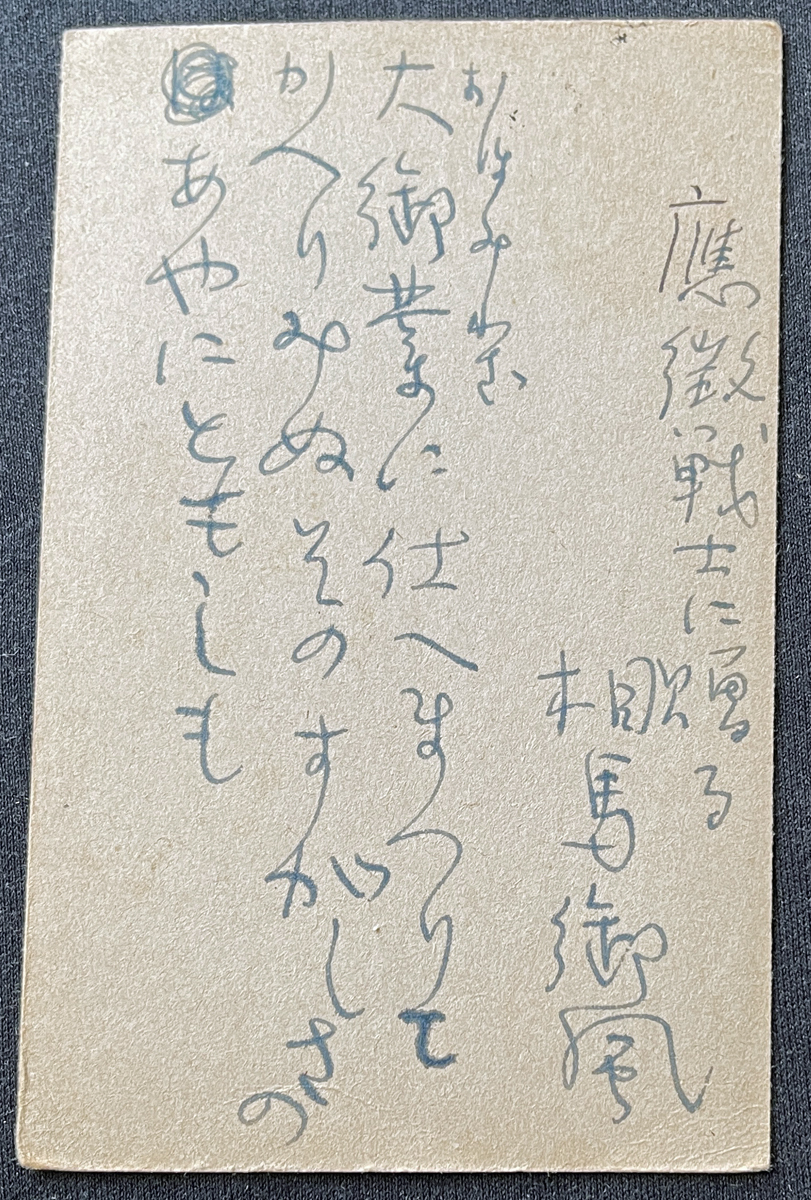 應徴戦士に贈る
相馬御風
おほみわざ
大御業に仕へまつりて
かへりみぬそのすがしさの
あやにともしも